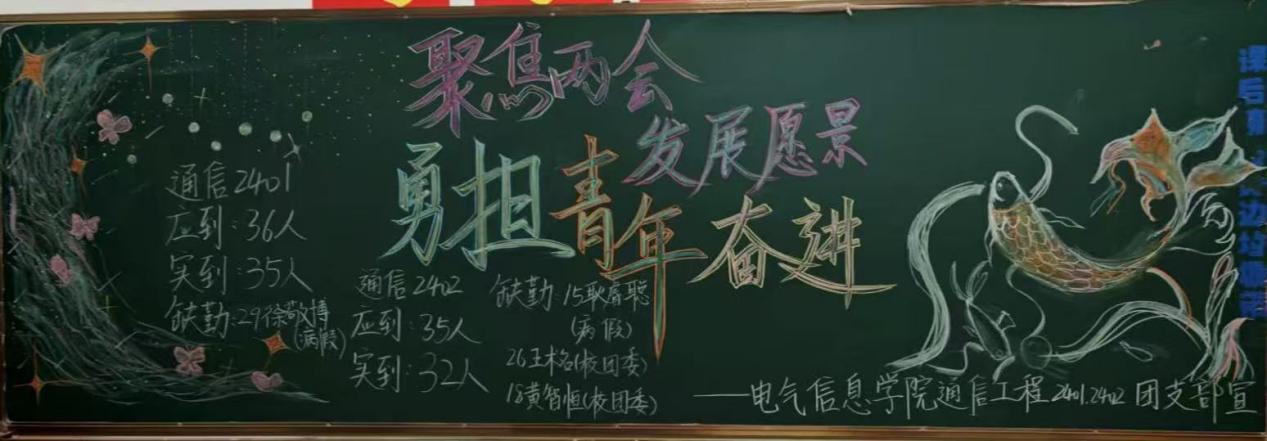 聚焦两会
发展愿景
勇担青年奋进
通信2401
应到:36人
实到:35人
缺勤:29徐敬博
(病假)
通信2402
应到:35人
实到:32人
缺勤:15耿聪
(病假)
26王木名(校团委)
18黄智恒(校团委)
——电气信息学院通信工程2401.2402团支部宣
课后